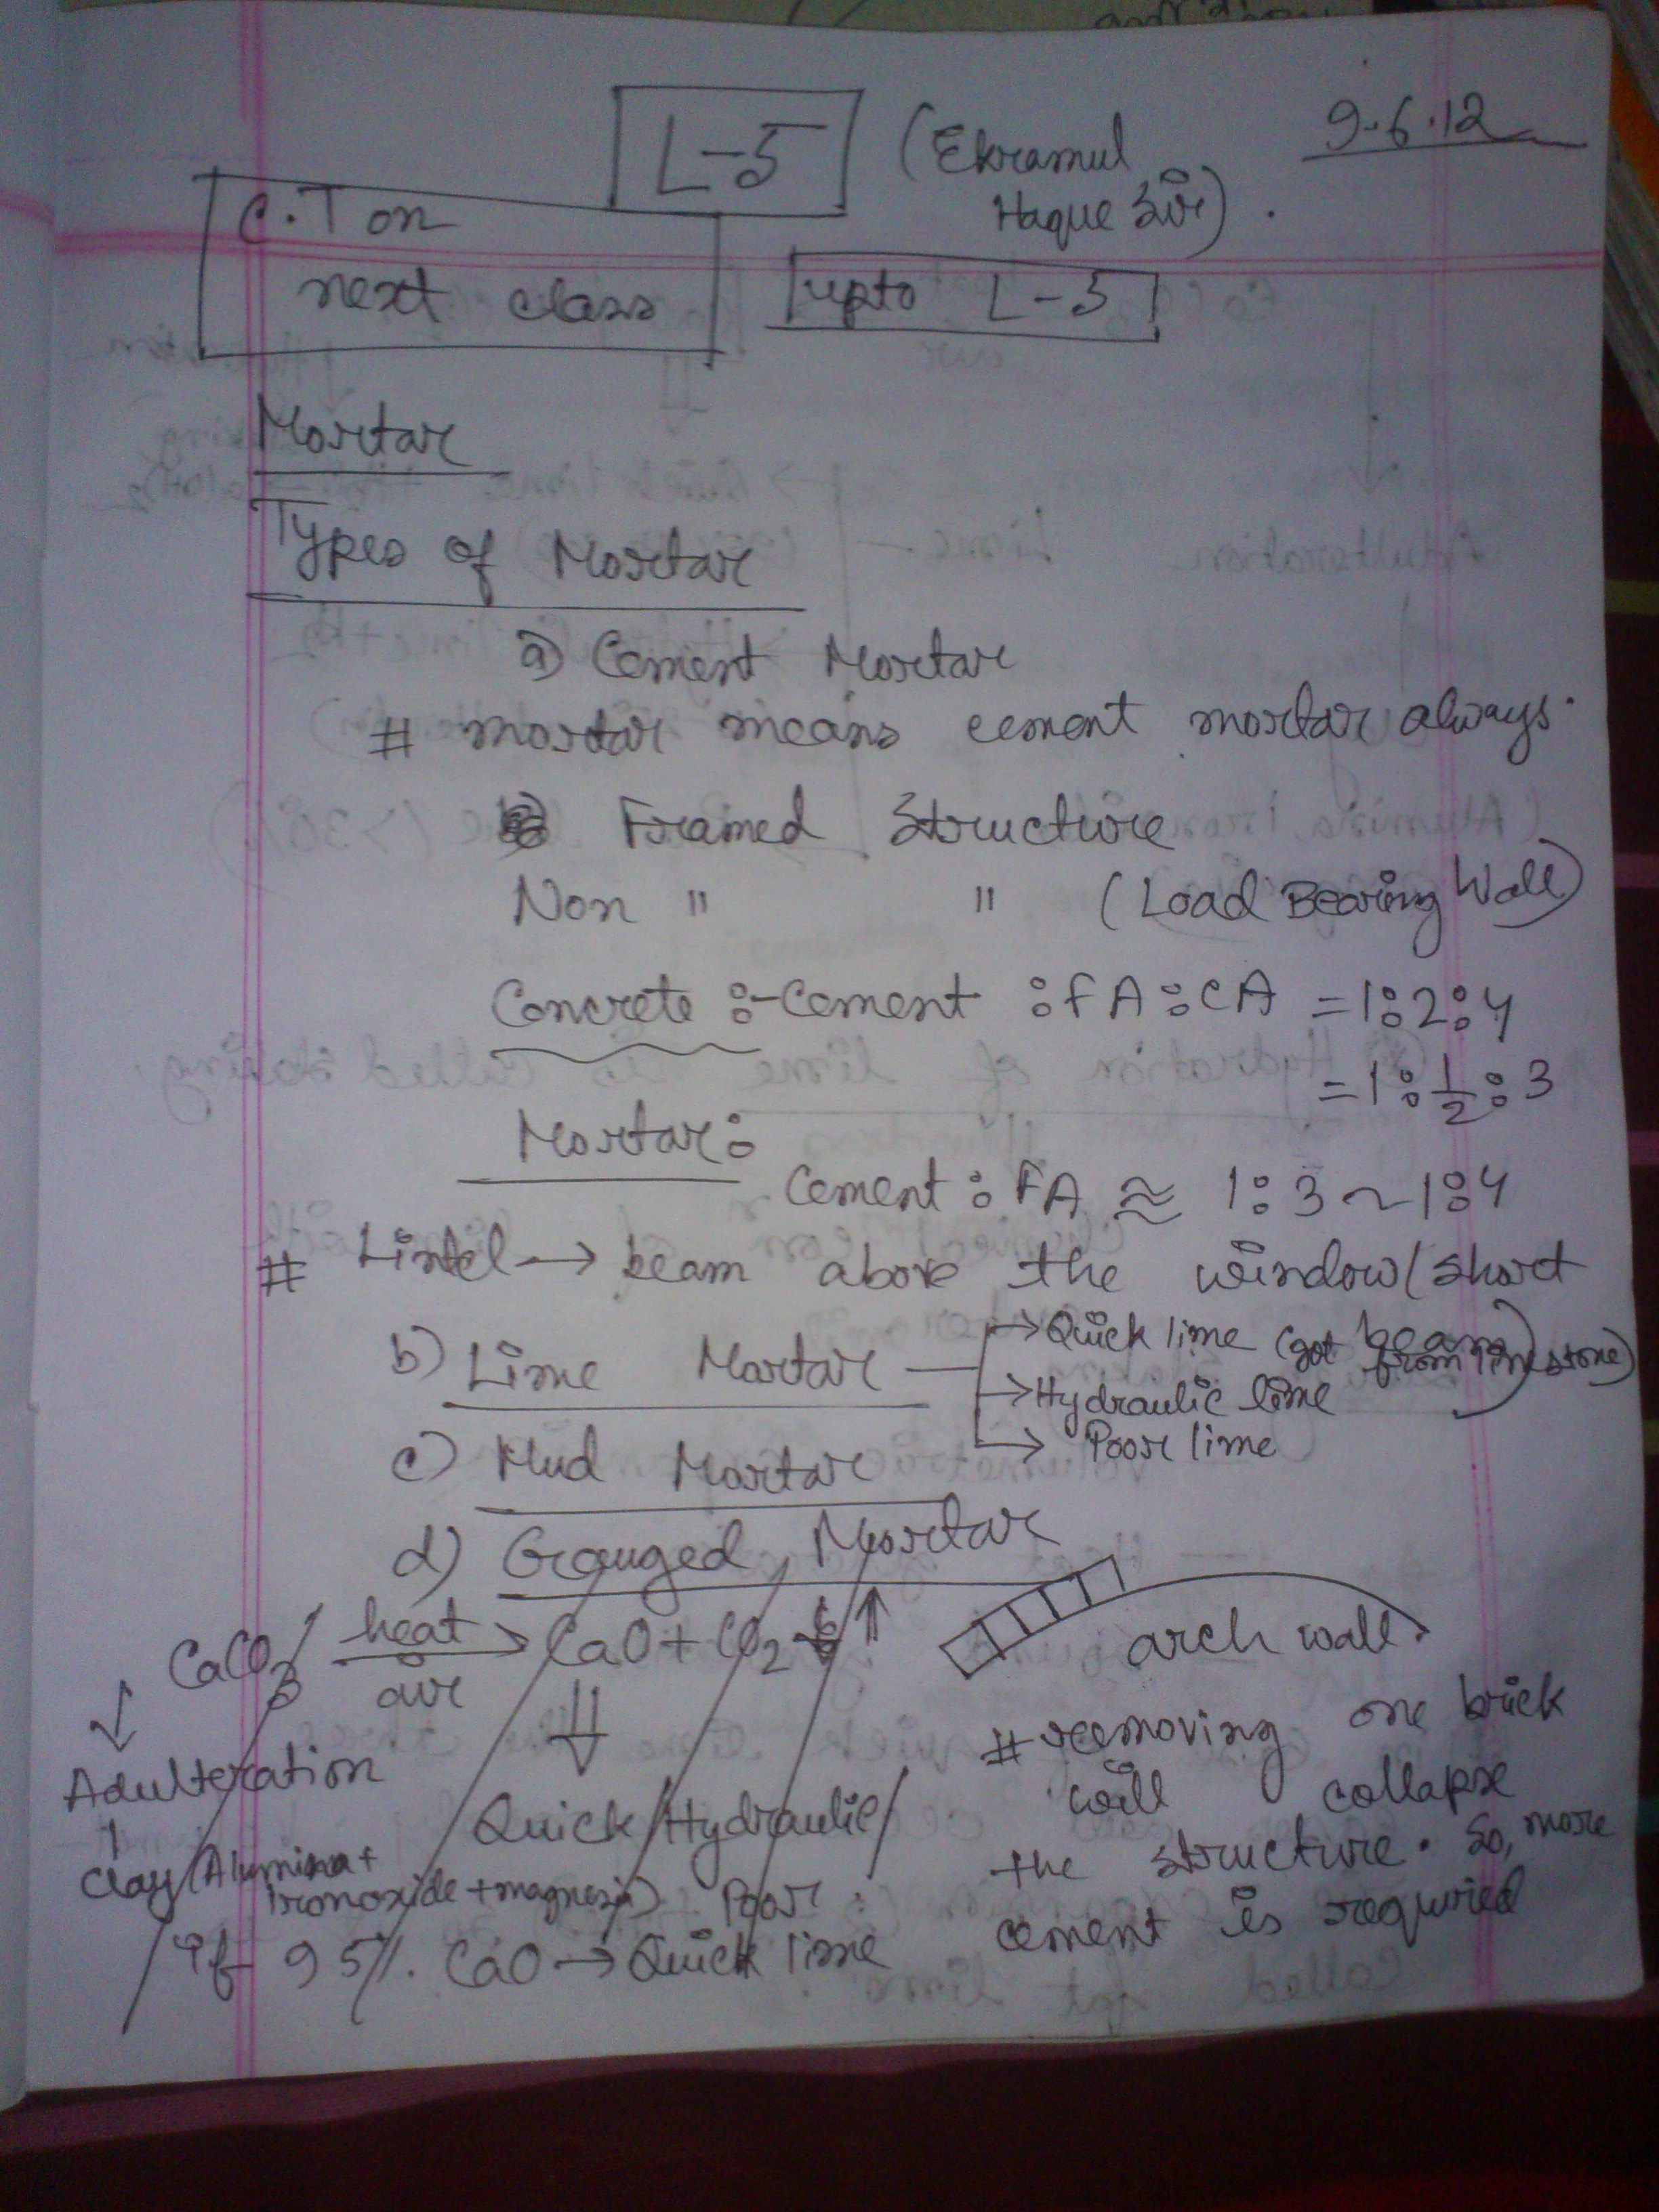 L-5 (Ekramul 9.6.12
Haque Sir).
C.T on
next class upto L-5
Mortar
Types of Mortar
a) Cement Mortar
# mortar means cement mortar always.
Framed Structure
Non " " (Load Bearing Wall)
Concrete :- Cement : FA : CA = 1:2:4
= 1:1/2:3
Mortar:
Cement : FA ≈ 1:3 ~ 1:4
# Lintel → beam above the window (short
beam)
b) Lime Mortar → Quick lime (got from limestone)
→ Hydraulic lime
→ Poor lime
c) Mud Mortar
d) Gauged Mortar
CaCO3 heat → CaO + CO2 ↑
air
arch wall.
Adulteration
Quick/Hydraulic/
Poor
Clay (Alumina +
Iron oxide + magnesia)
If 95%. CaO → Quick lime
# removing one brick
will collapse
the structure. So, more
cement is required